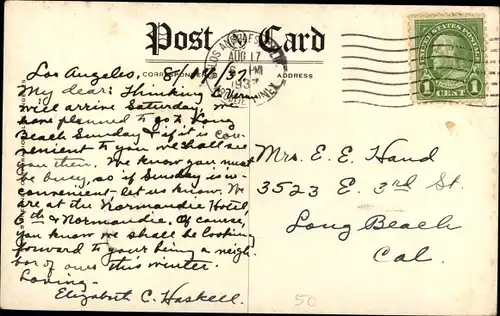 Post Card
CORRESPONDENCE
ADDRESS
LOS ANGELES, CALIF.
AUG 17
PM
1937
UNITED STATES POSTAGE
1 CENT 1
Los Angeles, 8/17/37.
My dear: Thinking
will arrive Saturday, we
have planned to go to Long
Beach Sunday & if it is con-
venient to you we shall see
you then. We know you must
be busy, so if Sunday is in-
convenient let us know. We
are at the Normandie Hotel,
6th & Normandie. Of course,
you know we shall be looking
forward to your being a neigh-
bor of ours this winter.
Loving-
Elizabeth C. Haskell.
Mrs. E. E. Hand
3523 E. 3rd St.
Long Beach
Cal.
50